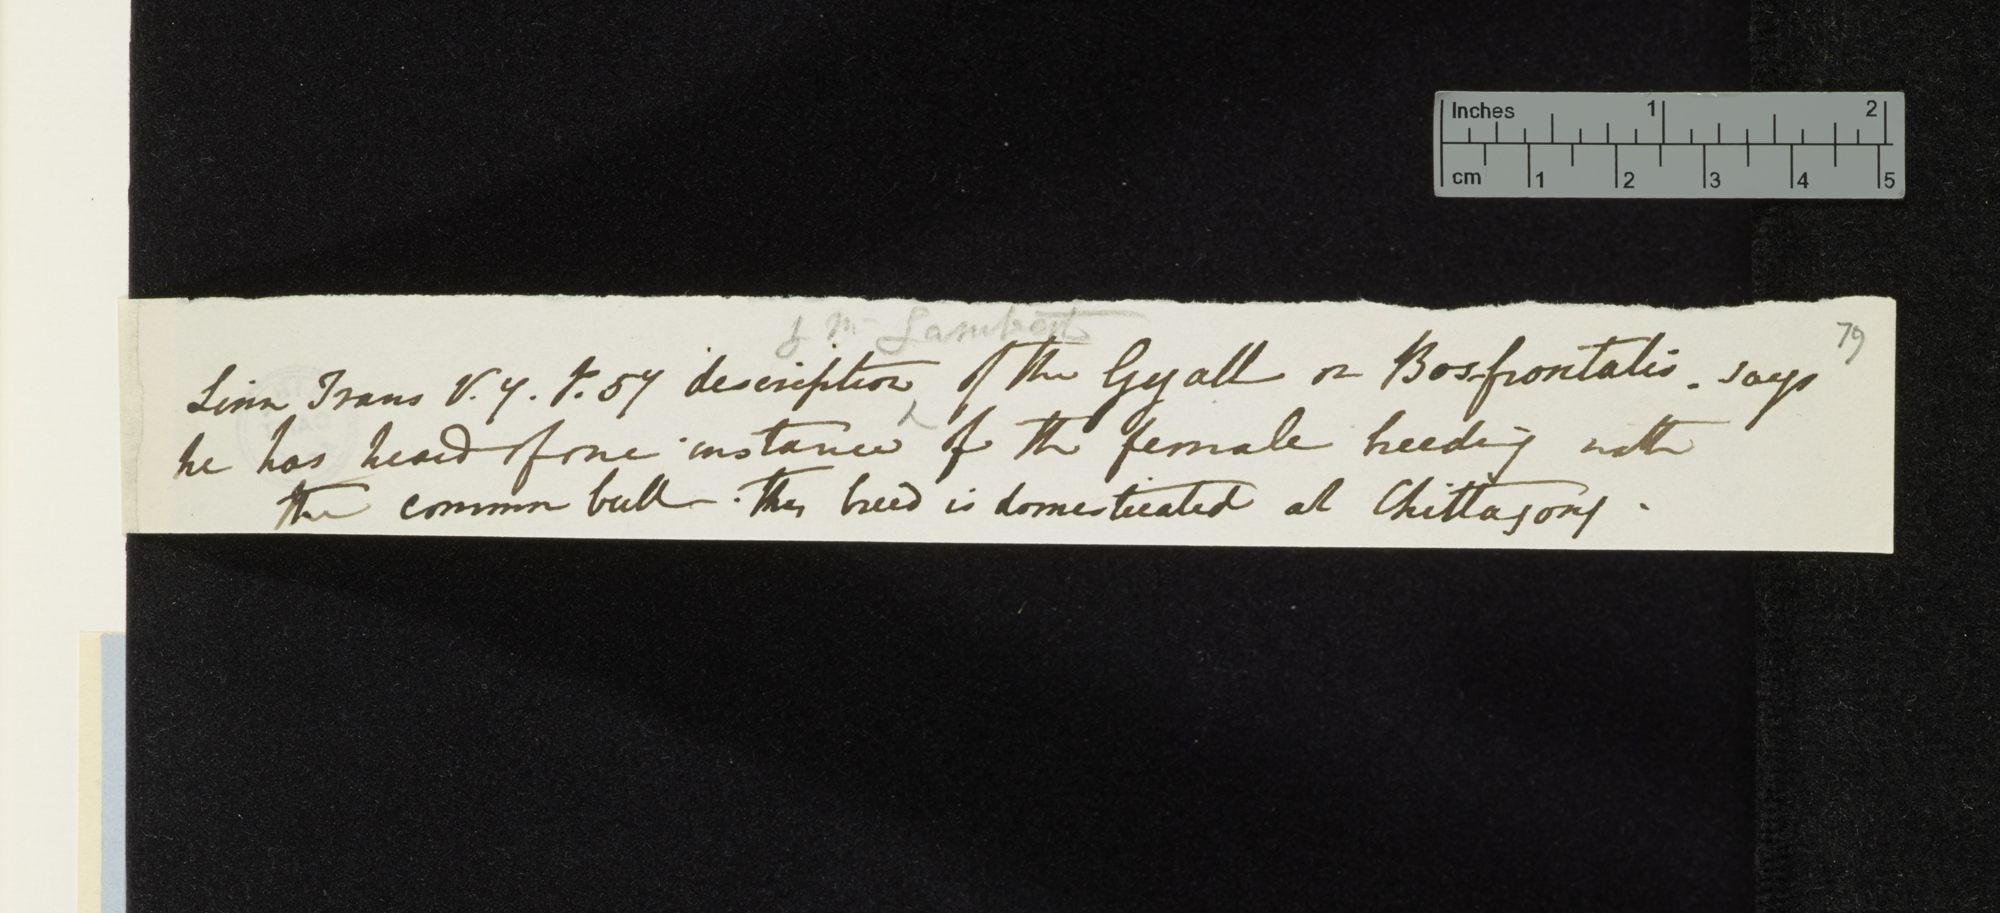 Inches 1 2
cm 1 2 3 4 5
79
by Mr Lambert
Linn Trans V. 7. P. 57 description ^ of the Gyall or Bos frontalis. says
he has heard of one instance of the female breeding with
the common bull. This breed is domesticated at Chittagong.